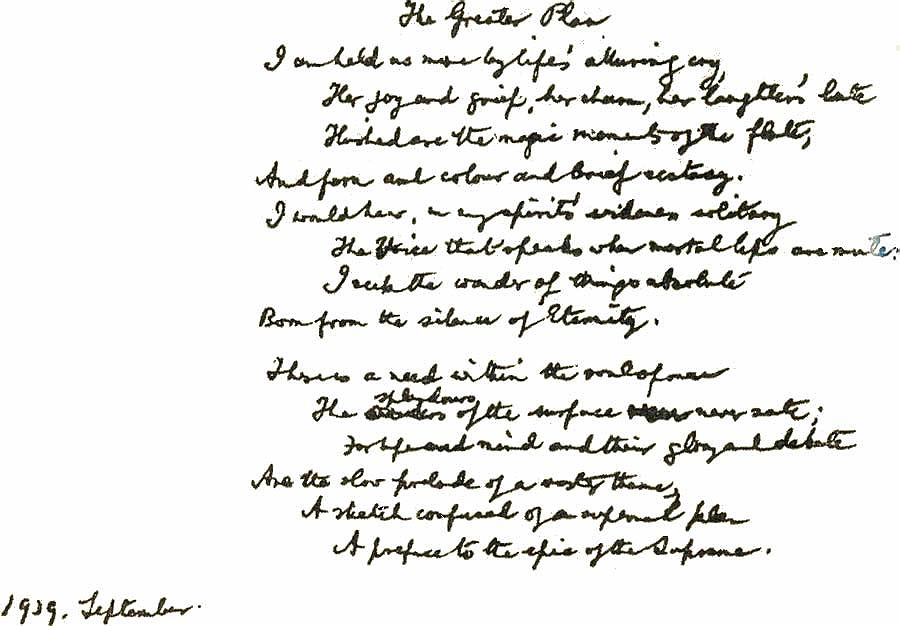 The Greater Plan
I am held no more by life's alluring cry,
Her joy and grief, her charm, her laughter's lute
Hushed are the magic moments of the flute,
And form and colour and brief ecstasy.
I would hear, in my spirit's wideness solitary
The Voice that speaks when mortal lips are mute:
I seek the wonder of things absolute
Born from the silence of Eternity.
There is a need within the soul of man
The splendours of the surface never sate;
For life and mind and their glory and debate
Are the slow prelude of a vaster theme,
A sketch confused of a supernal plan
A preface to the epic of the Supreme.
1939. September.